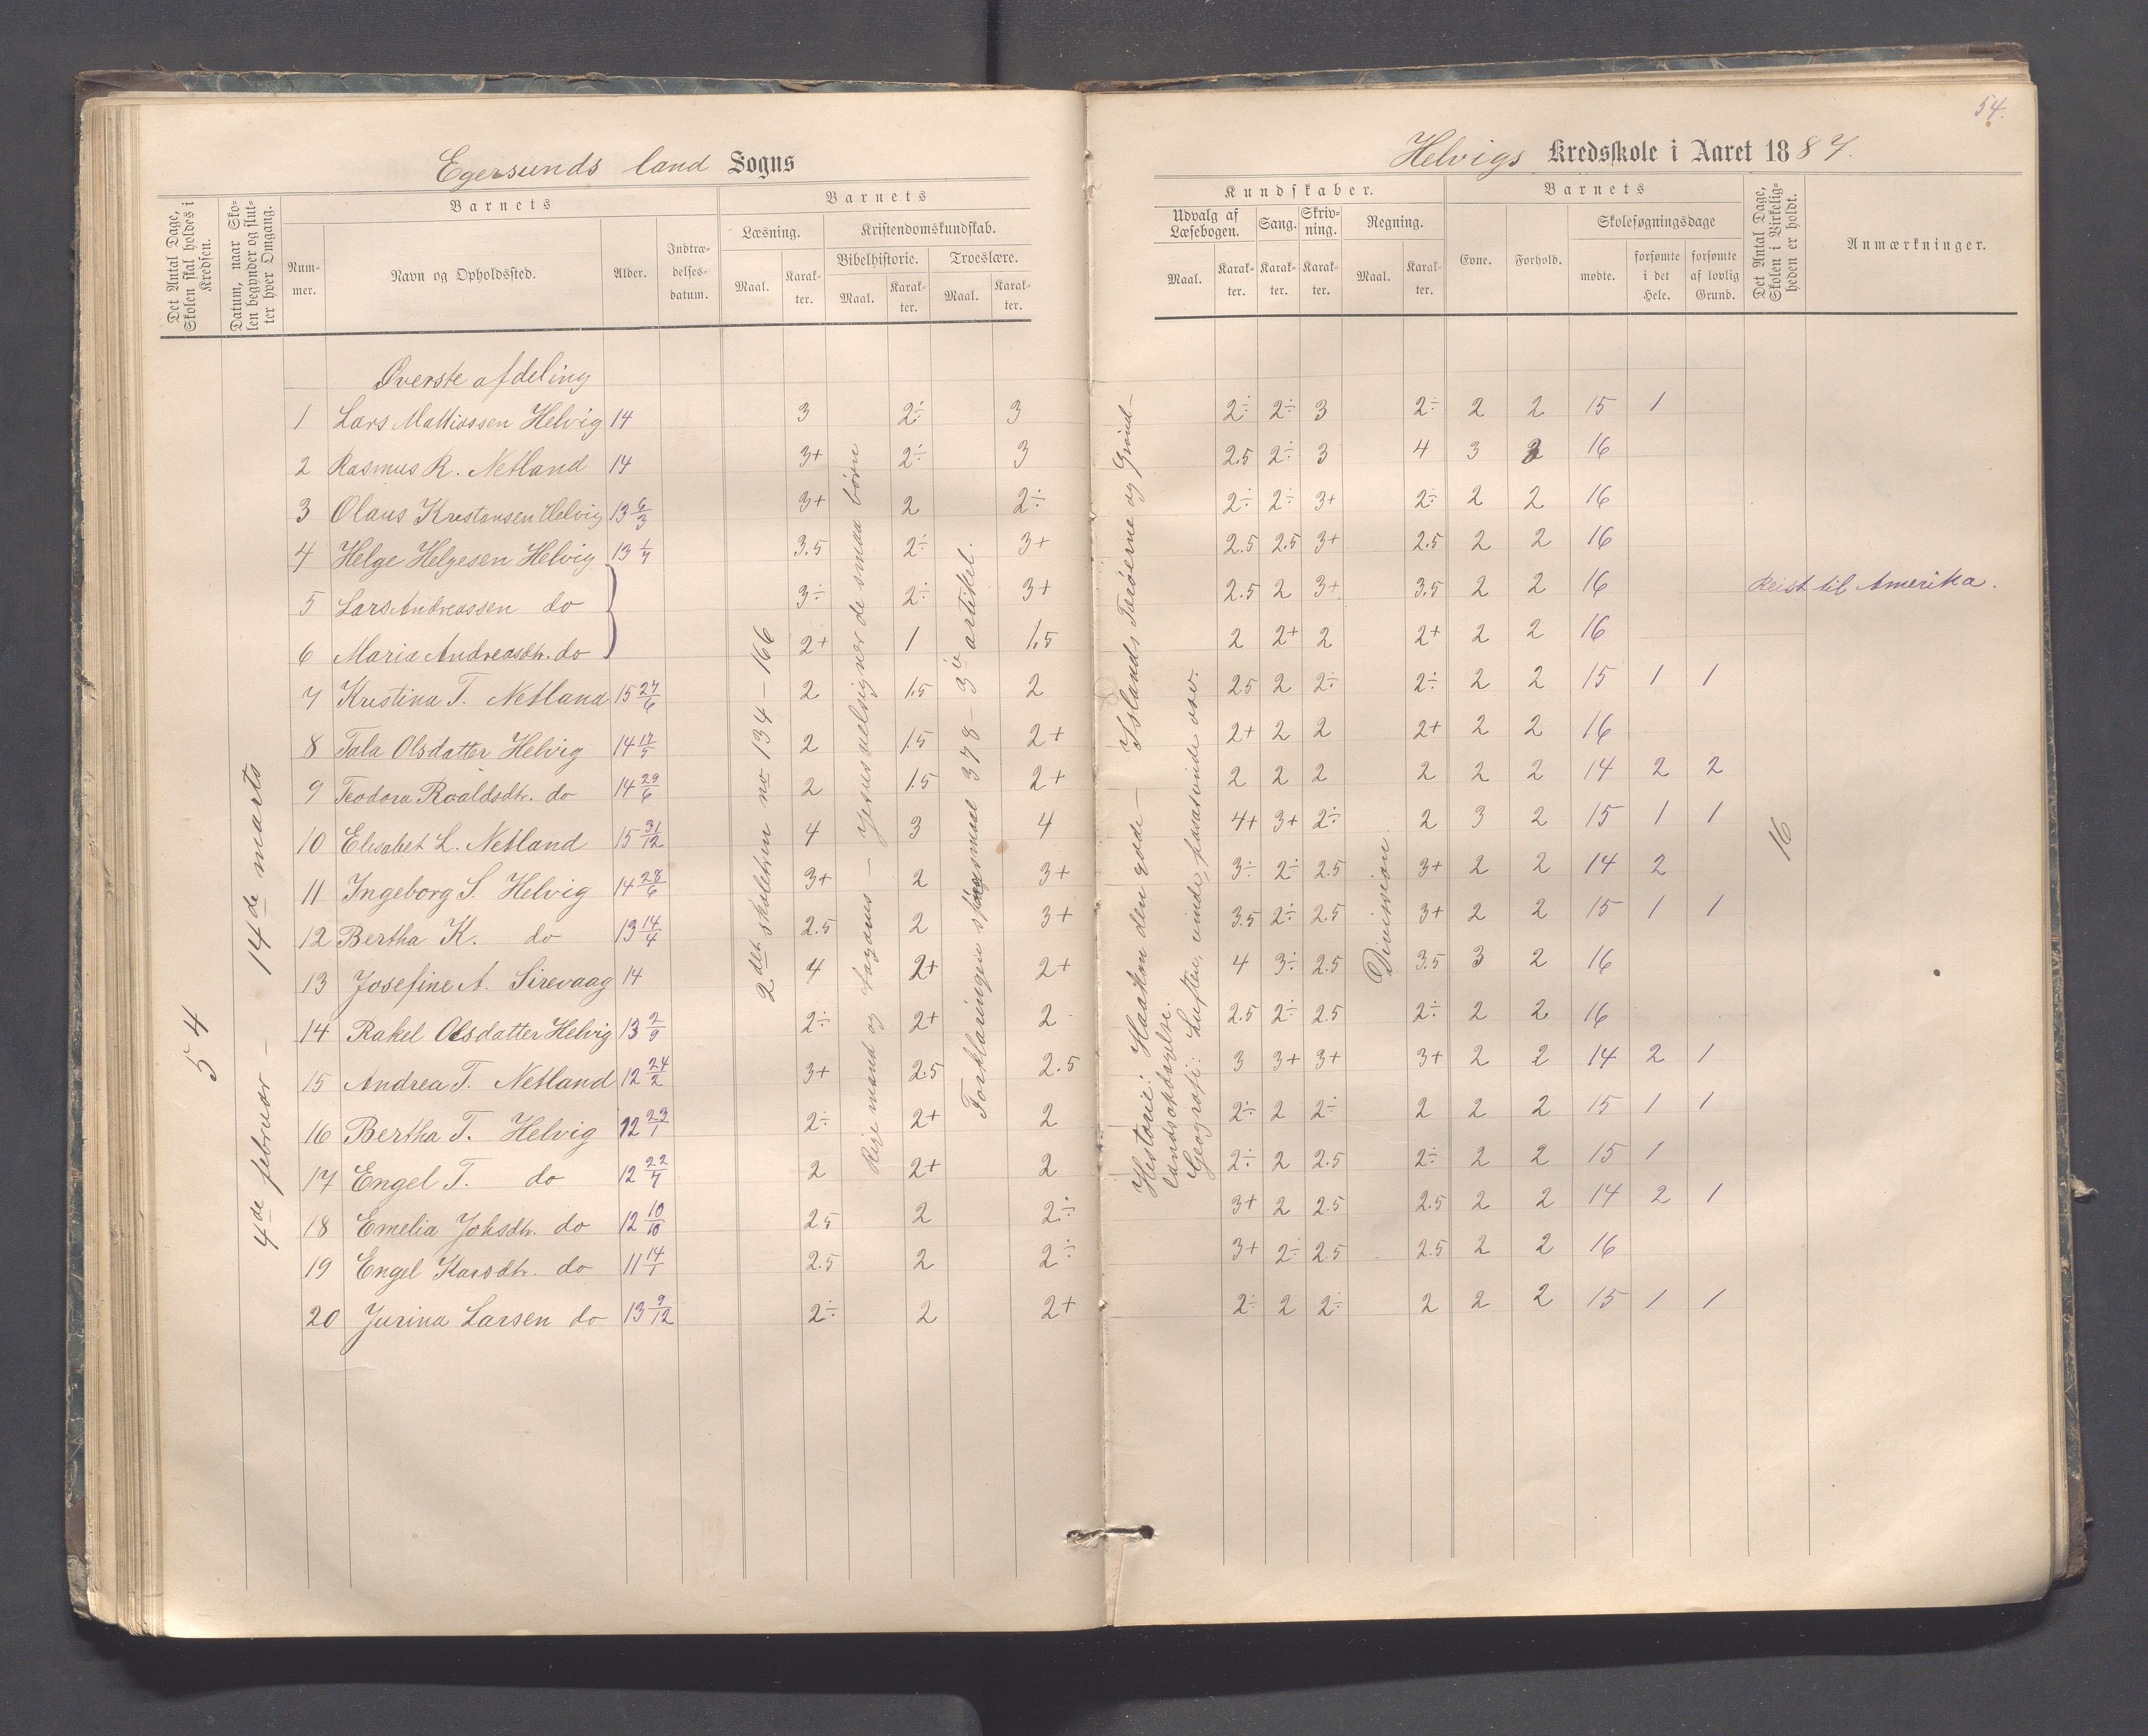 54.
Egersunds land Sogns
Helvigs Kredsskole i Aaret 1887.
Det Antal Dage, Skolen skal holdes i Kredsen.
Datum, naar Skolen begynder og slutter hver Omgang.
Barnets
Nummer.
Navn og Opholdssted.
Alder.
Indtrædelsesdatum.
Barnets
Læsning.
Maal.
Karakter.
Kristendomskundskab.
Bibelhistorie.
Maal.
Karakter.
Troeslære.
Maal.
Karakter.
Kundskaber.
Udvalg af Læsebogen.
Maal.
Karakter.
Sang.
Karakter.
Skrivning.
Karakter.
Regning.
Maal.
Karakter.
Barnets
Evne.
Forhold.
Skolesøgningsdage
mødte.
forsømte i det Hele.
forsømte af lovlig Grund.
Det Antal Dage, Skolen i Virkeligheden er holdt.
Anmærkninger.
54
4de februar – 14de marts
2det skoletrin no 134 – 166
Rige mand og Lazarus – Jesus velsigner de smaa børn
Forklaringen spørgsmaal 378 – 3ie artikel.
Historie: Haakon den gode – Islands Færøerne og Grønlands opdagelse.
Geografi: Luften, vinde, passatvinde osv.
Division.
16
Øverste afdeling
1 Lars Mattiassen Helvig 14 3 2÷ 3 2÷ 2÷ 3 2÷ 2 2 15 1
2 Rasmus R. Netland 14 3+ 2÷ 3 2.5 2÷ 3 4 3 2 16
3 Olaus Kristensen Helvig 13 6/3 3+ 2 2÷ 2÷ 2÷ 3+ 2÷ 2 2 16
4 Helge Helgesen Helvig 13 1/7 3.5 2÷ 3+ 2.5 2.5 3+ 2.5 2 2 16
5 Lars Andreassen do 3÷ 2÷ 3+ 2.5 2 3+ 3.5 2 2 16 Reist til Amerika.
6 Maria Andreasdtr. do 2+ 1 1.5 2 2+ 2 2+ 2 2 16
7 Kristina T. Netland 15 27/6 2 1.5 2 2.5 2 2÷ 2÷ 2 2 15 1 1
8 Tala Olsdatter Helvig 14 17/5 2 1.5 2+ 2+ 2 2 2+ 2 2 16
9 Teodora Roaldsdtr. do 14 29/6 2 1.5 2+ 2 2 2 2 2 2 14 2 2
10 Elisabet L. Netland 15 31/12 4 3 4 4+ 3+ 2÷ 2 3 2 15 1 1
11 Ingeborg S. Helvig 14 28/6 3+ 2 3+ 3÷ 2÷ 2.5 3+ 2 2 14 2
12 Bertha K. do 13 14/4 2.5 2 3+ 3.5 2÷ 2.5 3+ 2 2 15 1 1
13 Josefine A. Sirevaag 14 4 2+ 2+ 4 3÷ 2.5 3.5 3 2 16
14 Rakel Olsdatter Helvig 13 2/9 2÷ 2+ 2 2.5 2÷ 2.5 2÷ 2 2 16
15 Andrea T. Netland 12 24/2 3+ 2.5 2.5 3 3+ 3+ 3+ 2 2 14 2 1
16 Bertha T. Helvig 12 23/1 2÷ 2+ 2 2÷ 2 2÷ 2 2 2 15 1 1
17 Engel T. do 12 22/7 2 2+ 2 2÷ 2 2.5 2÷ 2 2 15 1
18 Emelia Johsdtr. do 12 10/10 2.5 2 2÷ 3+ 2 2.5 2.5 2 2 14 2 1
19 Engel Karsdtr. do 11 14/1 2.5 2 2÷ 3+ 2÷ 2.5 2.5 2 2 16
20 Jurina Larsen do 13 9/12 2÷ 2 2+ 2÷ 2 2÷ 2 2 2 15 1 1